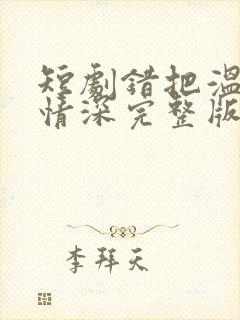 短劇錯把溫
情深完整版
李拜天